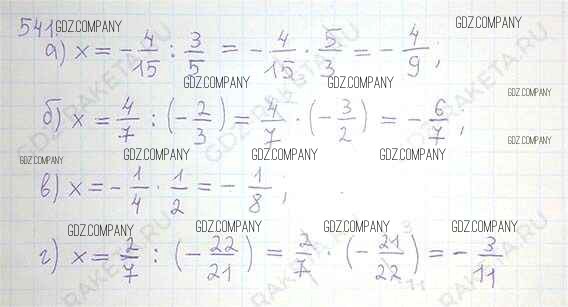 541.
GDZ.COMPANY GDZ.COMPANY
а) x = - 4/15 : 3/5 = - 4/15 · 5/3 = - 4/9;
GDZ.COMPANY GDZ.COMPANY GDZ.COMPANY
б) x = 4/7 : (- 2/3) = 4/7 · (- 3/2) = - 6/7;
GDZ.COMPANY
GDZ.COMPANY GDZ.COMPANY GDZ.COMPANY GDZ.COMPANY
в) x = - 1/4 · 1/2 = - 1/8;
GDZ.COMPANY GDZ.COMPANY GDZ.COMPANY GDZ.COMPANY
г) x = 2/7 : (- 22/21) = 2/7 · (- 21/22) = - 3/11
GDZRAKETA.RU